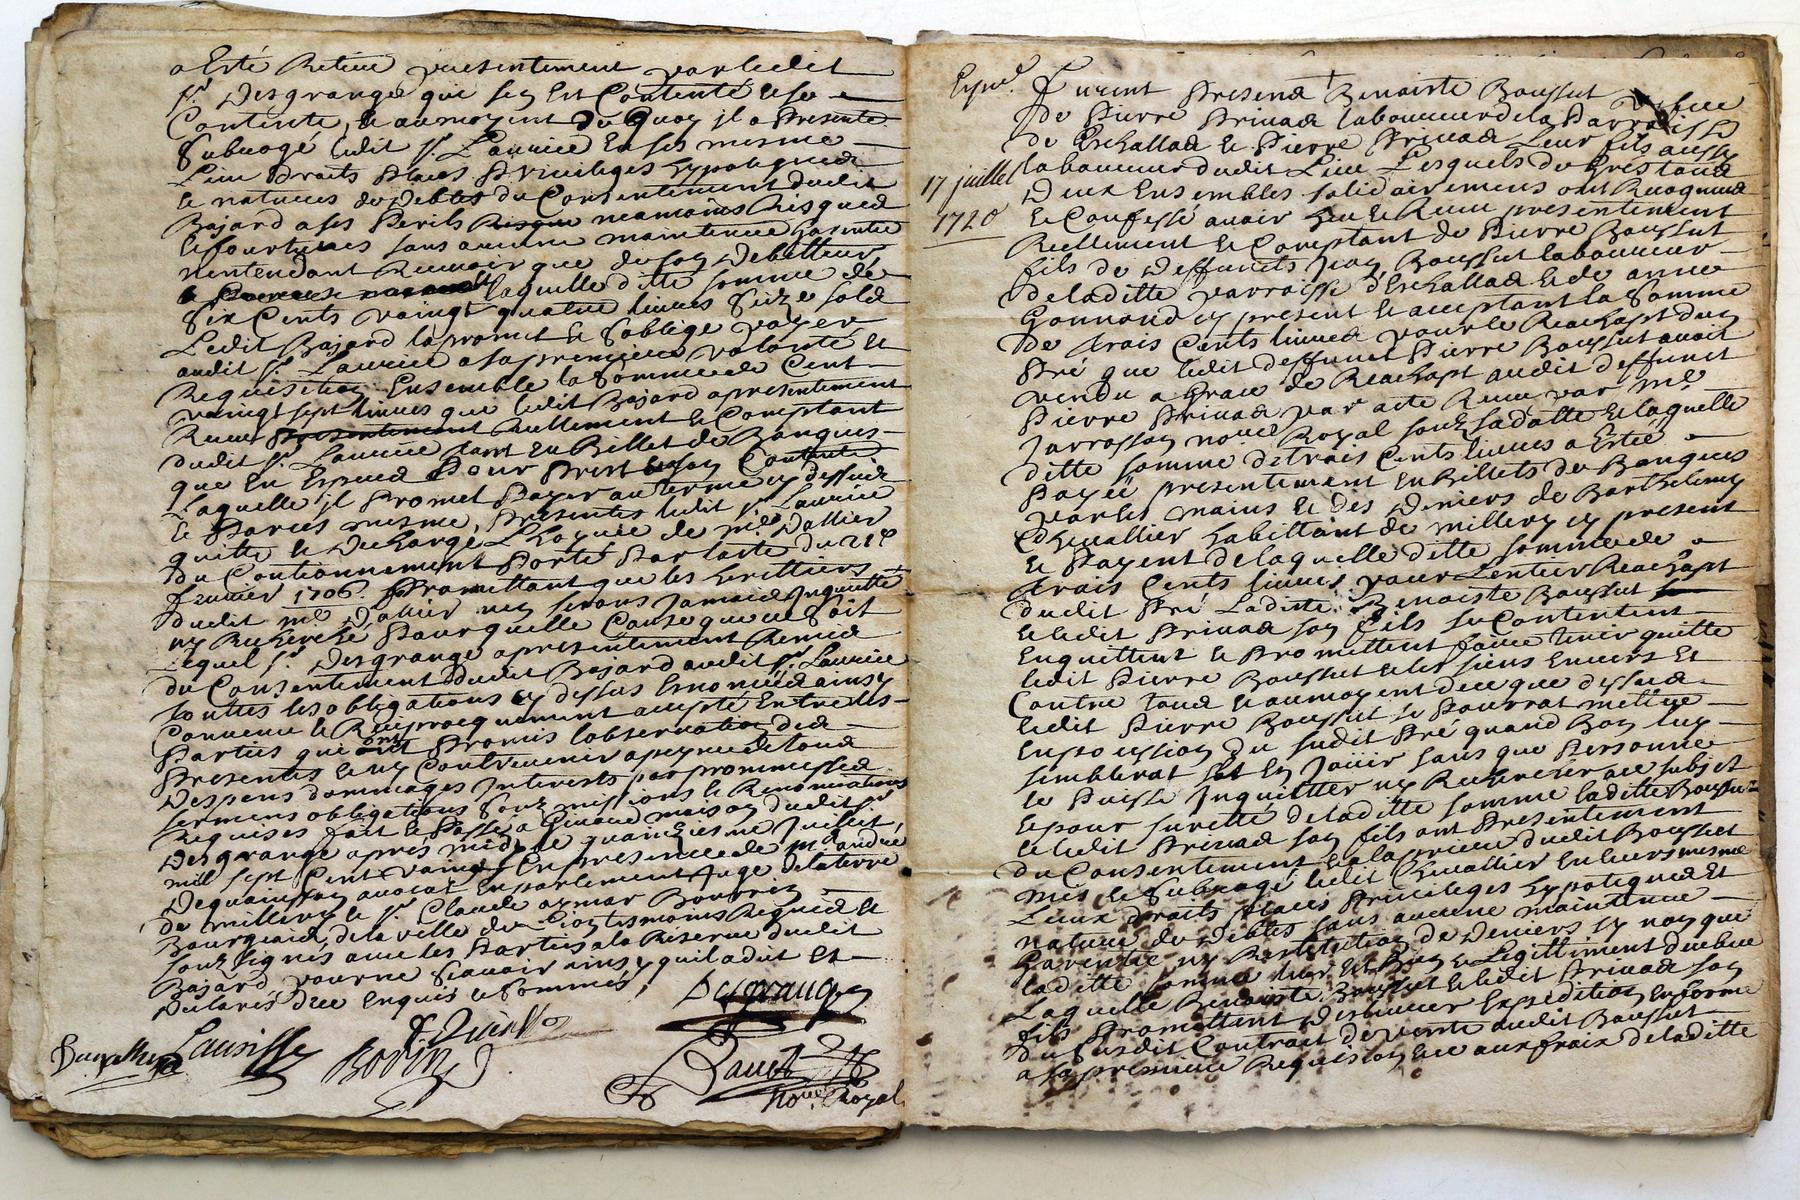 a Esté Retiré presentement par ledit
sr. Desgrange qui sen Est Contenté et se
Contente, et au moyent de quoy jl a Presente
Subrogé ledit sr. Laurice En ses mesme
Lieu droits Places Privileges hypoteques
et natures de debtes du Consentement dudit
Bajard a ses Perils Risque neamoins Risques
et fourtunes sans aucune maintenue garentie
nentendant Recevoir que de son Debitteur
laquelle ditte somme de
Six Cents vaingt quatre livres Seize sols
Ledit Bajard la promet et Soblige payer
audit sr. Laurice a sa premiere volonté et
Requisition, Ensemble la Somme de Cent
vaingt sept livres que ledit Bajard a presentement
Receu presentement Reellement et Comptant
dudit sr. Laurice tant En Billet de Banques
que En Especes Pour Prest En son Contente
Laquelle jl Promet Payer au terme cy dessus
et Parces mesme Presentes ledit sr. Laurice
quitte et Decharge L'hoyrie de me. Dallier
du Contionnement Porté Par lacte du 21e
fevrier 1706. Promettant que les heritiers
dudit me. Dallier ney serons Jamais Inquietté
ny Recherché Pour quelle Cause que ce soit
Lequel sr. Desgrange a presentement Remis
du Consentement dudit Bajard audit sr. Laurice
touttes les obligations cy dessus Enoncées ainsy
Convenu et Reciproquement accepté Entre les
Parties qui ont Promis lobservation des
Presentes et ny Contrevenir a peyne de tous
Despens dommages Interests par prommesses
serment obligations Soumissions et Renonciations
Requises fait et Passé a Givors maison dudit sr.
Desgrange apres midy le quainziesme Juillet,
mil sept Cent vaingt En presence de mr. andré
Dequainson avocat En parlement Juge de la terre
de millery et sr. Claude aymar Bovrin
Bourgeois de la ville de Lion tesmoins Requis et
soubsignés avec les Parties a la Reserve dudit
Bajard pour ne scavoir ainsy quil a dit et
Declaré de ce Enquis et Sommés,
Desgrange
Laurisse
Bovrin
nore. Royal
Expié.
17 juillet
1720
Furent Presens Benoiste Boussut vefve
de Pierre Privas laboureur de la Parroisse
de Eschallas et Pierre Privas Leur fils aussy
laboureur dudit Lieu Lesquels de Gres tous
Deux Ensembles solidairemens ont Recognus
et Confessé avoir Heu et Receu presentement
Reellement et Comptant de Pierre Boussut
fils de deffuncts Jean Boussut laboureur
de laditte parroisse d'Eschallas et de anne
Gonnond cy present et acceptant la Somme
de trois Cents livres pour le Reachapt dun
Pré que ledit deffunct Pierre Boussut avoit
vendu a Grace de Reachapt audit deffunct
Pierre Privas par acte Receu par me.
Jarrosson nore. Royal souz sa datte et laquelle
ditte somme de trois Cents livres a Estée
Payée presentement En Billets de Banques
par les mains et des Deniers de Barthelemy
Chevallier habittant de millery cy present
et Payent de laquelle ditte somme de
trois Cents livres pour L'entier Reachapt
dudit Pré Laditte Benoiste Boussut
et ledit Privas son fils se Contentent
En quittent et Promettent faire tenir quitte
ledit Pierre Boussut et les siens Envers et
Contre tous et au moyent de ce que dessus
ledit Pierre Boussut se Pourrat mettre
En possession du susdit Pré quand Bon luy
semblerat et En Jouir sans que Personne
le Puisse Inquietter ny Rechercher a ce subject
et pour suretté de laditte somme laditte Boussut
et ledit Privas son fils ont Presentement
du Consentement et a la priere dudit Boussut
mis et Subrogé ledit Chevallier En leurs mesme
Lieux droits Places Privileges hypoteques et
nature de Debtes sans aucune maintenue
Garentie ny Restitution de Deniers sy non que
laditte somme leur Est Bien et Legittiment dheue
Laquelle Benoiste Boussut et ledit Privas son
fils Promettent Deslivrer Expedition En forme
du susdit Contrait de vente audit Boussut
a sa premiere Requisition, et ce aux fraix de laditte